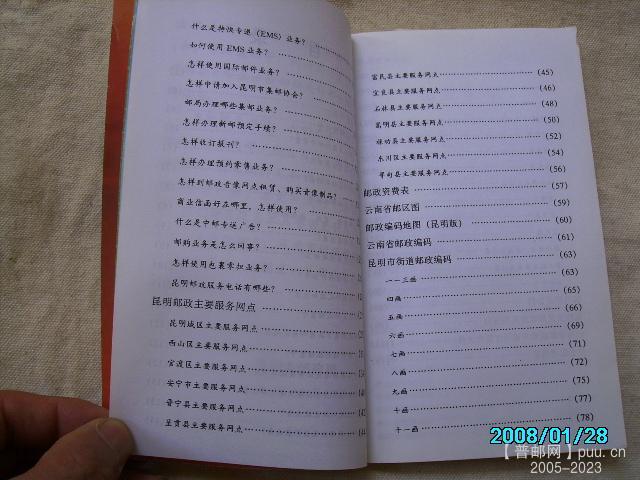 什么是特快专递（EMS）业务？
如何使用EMS业务？
怎样使用国际邮件业务？
怎样申请加入昆明市集邮协会？
邮局办理哪些集邮业务？
怎样办理新邮预定手续？
怎样收订报刊？
怎样办理预约零售业务？
怎样到邮政音像网点租赁、购买音像制品？
商业信函好在哪里，怎样使用？
什么是中邮专送广告？
邮购业务是怎么回事？
怎样使用包裹零担业务？
昆明邮政服务电话有哪些？
昆明邮政主要服务网点
昆明城区主要服务网点
西山区主要服务网点
官渡区主要服务网点
安宁市主要服务网点
晋宁县主要服务网点
呈贡县主要服务网点
富民县主要服务网点 (45)
宜良县主要服务网点 (46)
石林县主要服务网点 (48)
嵩明县主要服务网点 (50)
禄劝县主要服务网点 (52)
东川区主要服务网点 (54)
寻甸县主要服务网点 (56)
邮政资费表 (57)
云南省邮区图 (59)
邮政编码地图（昆明版） (60)
云南省邮政编码 (61)
昆明市街道邮政编码 (63)
一一三画 (63)
四画 (65)
五画 (66)
六画 (69)
七画 (71)
八画 (72)
九画 (75)
十画 (77)
十一画 (78)
2008/01/28
【普邮网】puu.cn
2005-2023